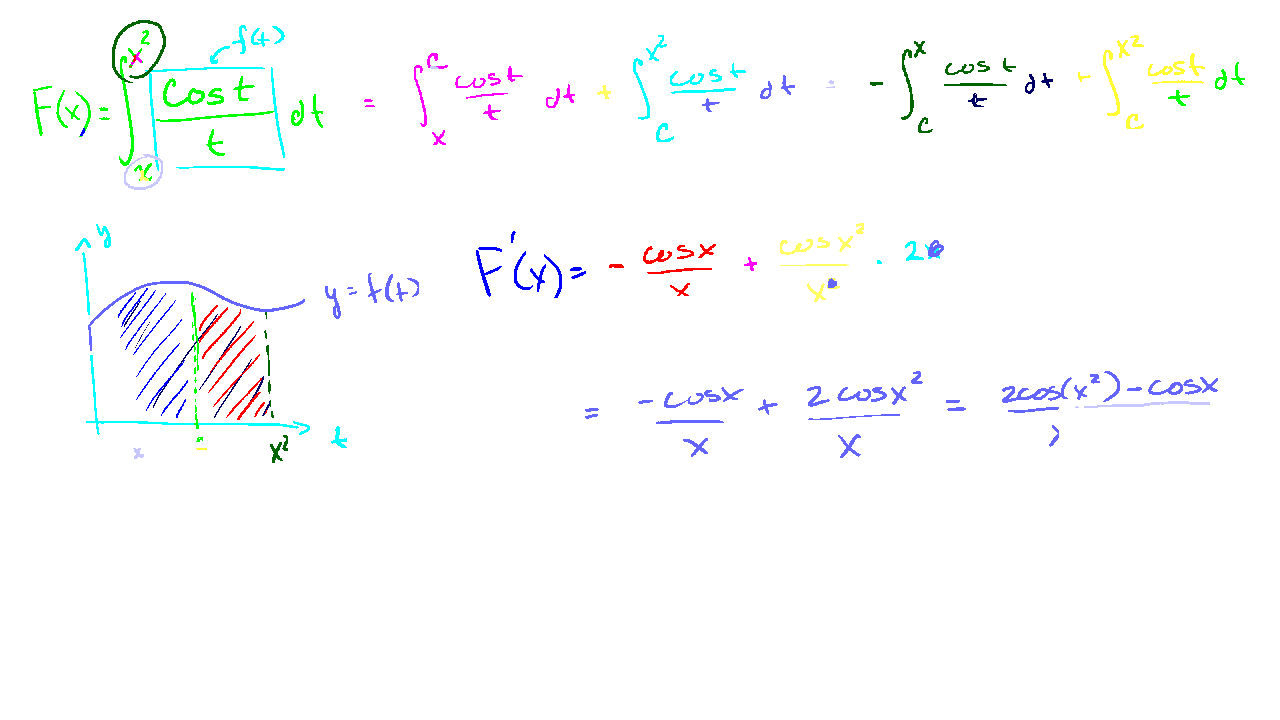 f(t)
F(x) = ∫_x^{x²} cos t / t dt = ∫_x^c cos t / t dt + ∫_c^{x²} cos t / t dt = - ∫_c^x cos t / t dt + ∫_c^{x²} cos t / t dt
y
y = f(t)
t
x
x²
F'(x) = - cos x / x + cos x² / x · 2
= -cos x / x + 2 cos x² / x = 2cos(x²) - cos x / x